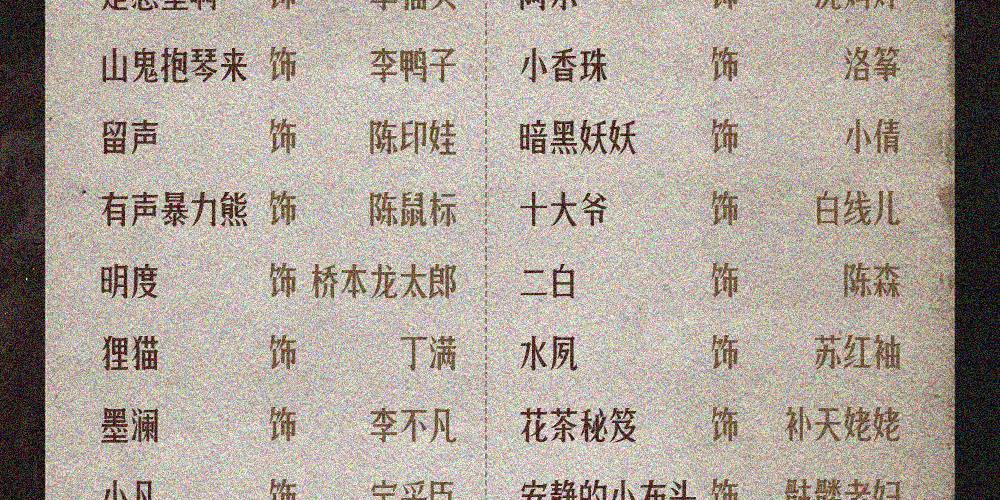 山鬼抱琴来 饰 李鸭子 小香珠 饰 洛筝
留声 饰 陈印娃 暗黑妖妖 饰 小倩
有声暴力熊 饰 陈鼠标 十大爷 饰 白线儿
明度 饰 桥本龙太郎 二白 饰 陈森
狸猫 饰 丁满 水夙 饰 苏红袖
墨澜 饰 李不凡 花茶秘笈 饰 补天姥姥
小凡 饰 安静的小布头 饰